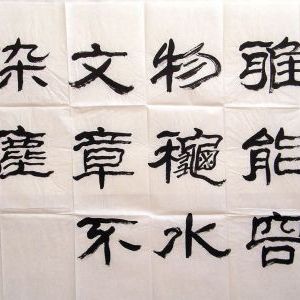 雅能容
物龝水
文章不
染塵